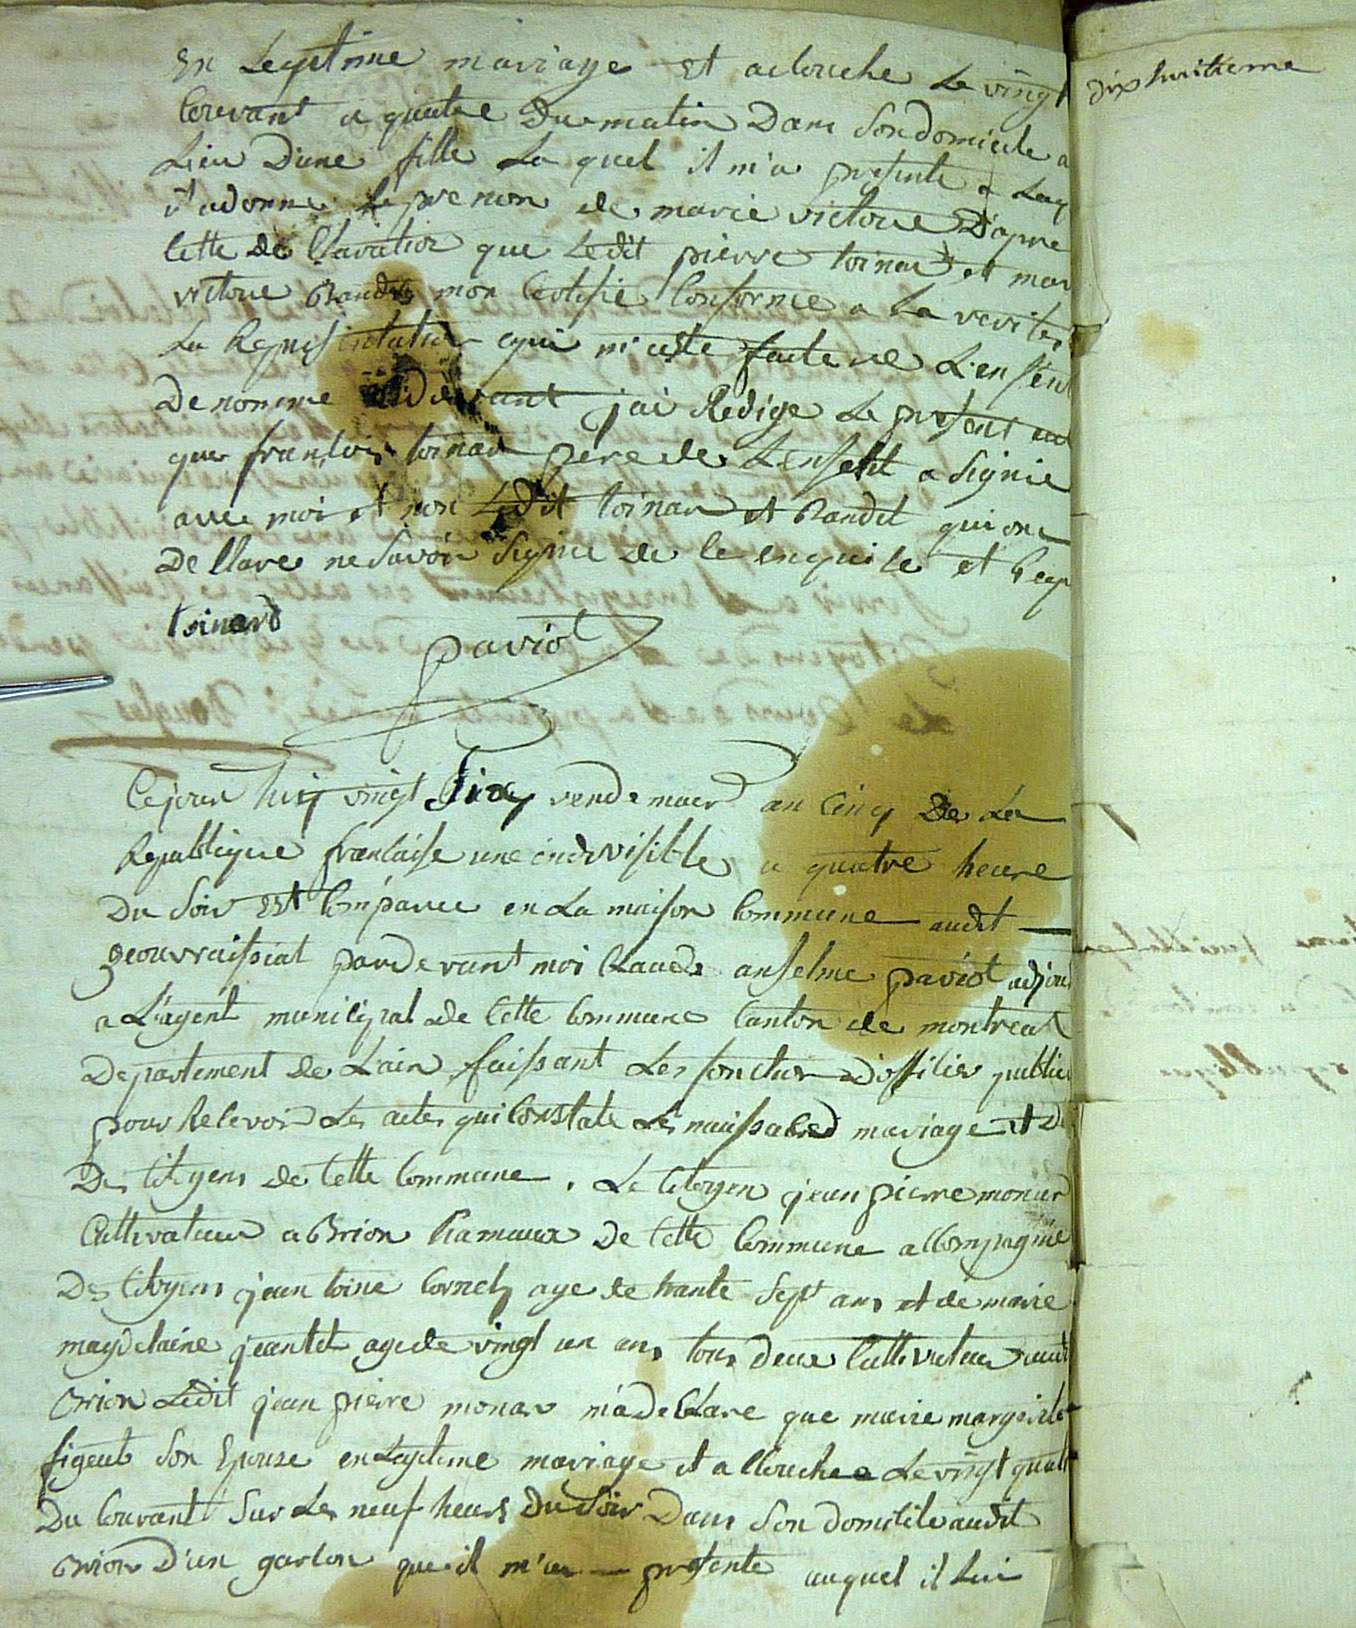 En Legitime mariage Et aclouche Le vingt
Courant a quatre Du matin Dans Son domicile a
Lieu D'une fille La quel il m'a presente a Laq
il adonne Le prenon de marie victoire D'apre
Cette de Claration que Ledit pierre toinard et mar
victoire mon Certifie Conforme a La verite,
La Representation qui m'aete faite de L'enfent
Denomme cidevant j'ai Redige Le present act
que francois toinar pere de L'enfent a Signie
avec moi et non Ledit toinar et qui on
De Clare ne Savoir Signie de le enqui le et
toinard
paviot
Cejour huy vingt Six vendemaier an Cinq De La
Republique francaise une indivisible a quatre heure
Du Soir Est Comparu en La maison Commune audit
geouvraissiat pardevant moi Claude anselme paviot adjoin
a L'agent municipal de Cette Commune Canton de montreal
Departement de Lain faissant Les fonction D'officier public
pour Recevoir Les actes qui Constate Les naissances mariage et D
Des Citoyens de Cette Commune. Le Citoyen jean pierre monard
Cultivateur a Brion hamaux De Cette Commune accompagnie
Des Citoyens jean toine Cornet age de trante Sept ans et de marie
magdelaine jeantet agede vingt un ans tous deux Cultivateur audit
Brion Ledit jean pierre monar m'a de Clare que marie margerite
figeut Son Epouse en Legitime mariage et a Couchee Le vingt quatr
Du Courant Sur Les neuf heurs Du Soir Dans Son domicile audit
Brion D'un garcon que il m'a presente auquel il Lui
dixhuitieme